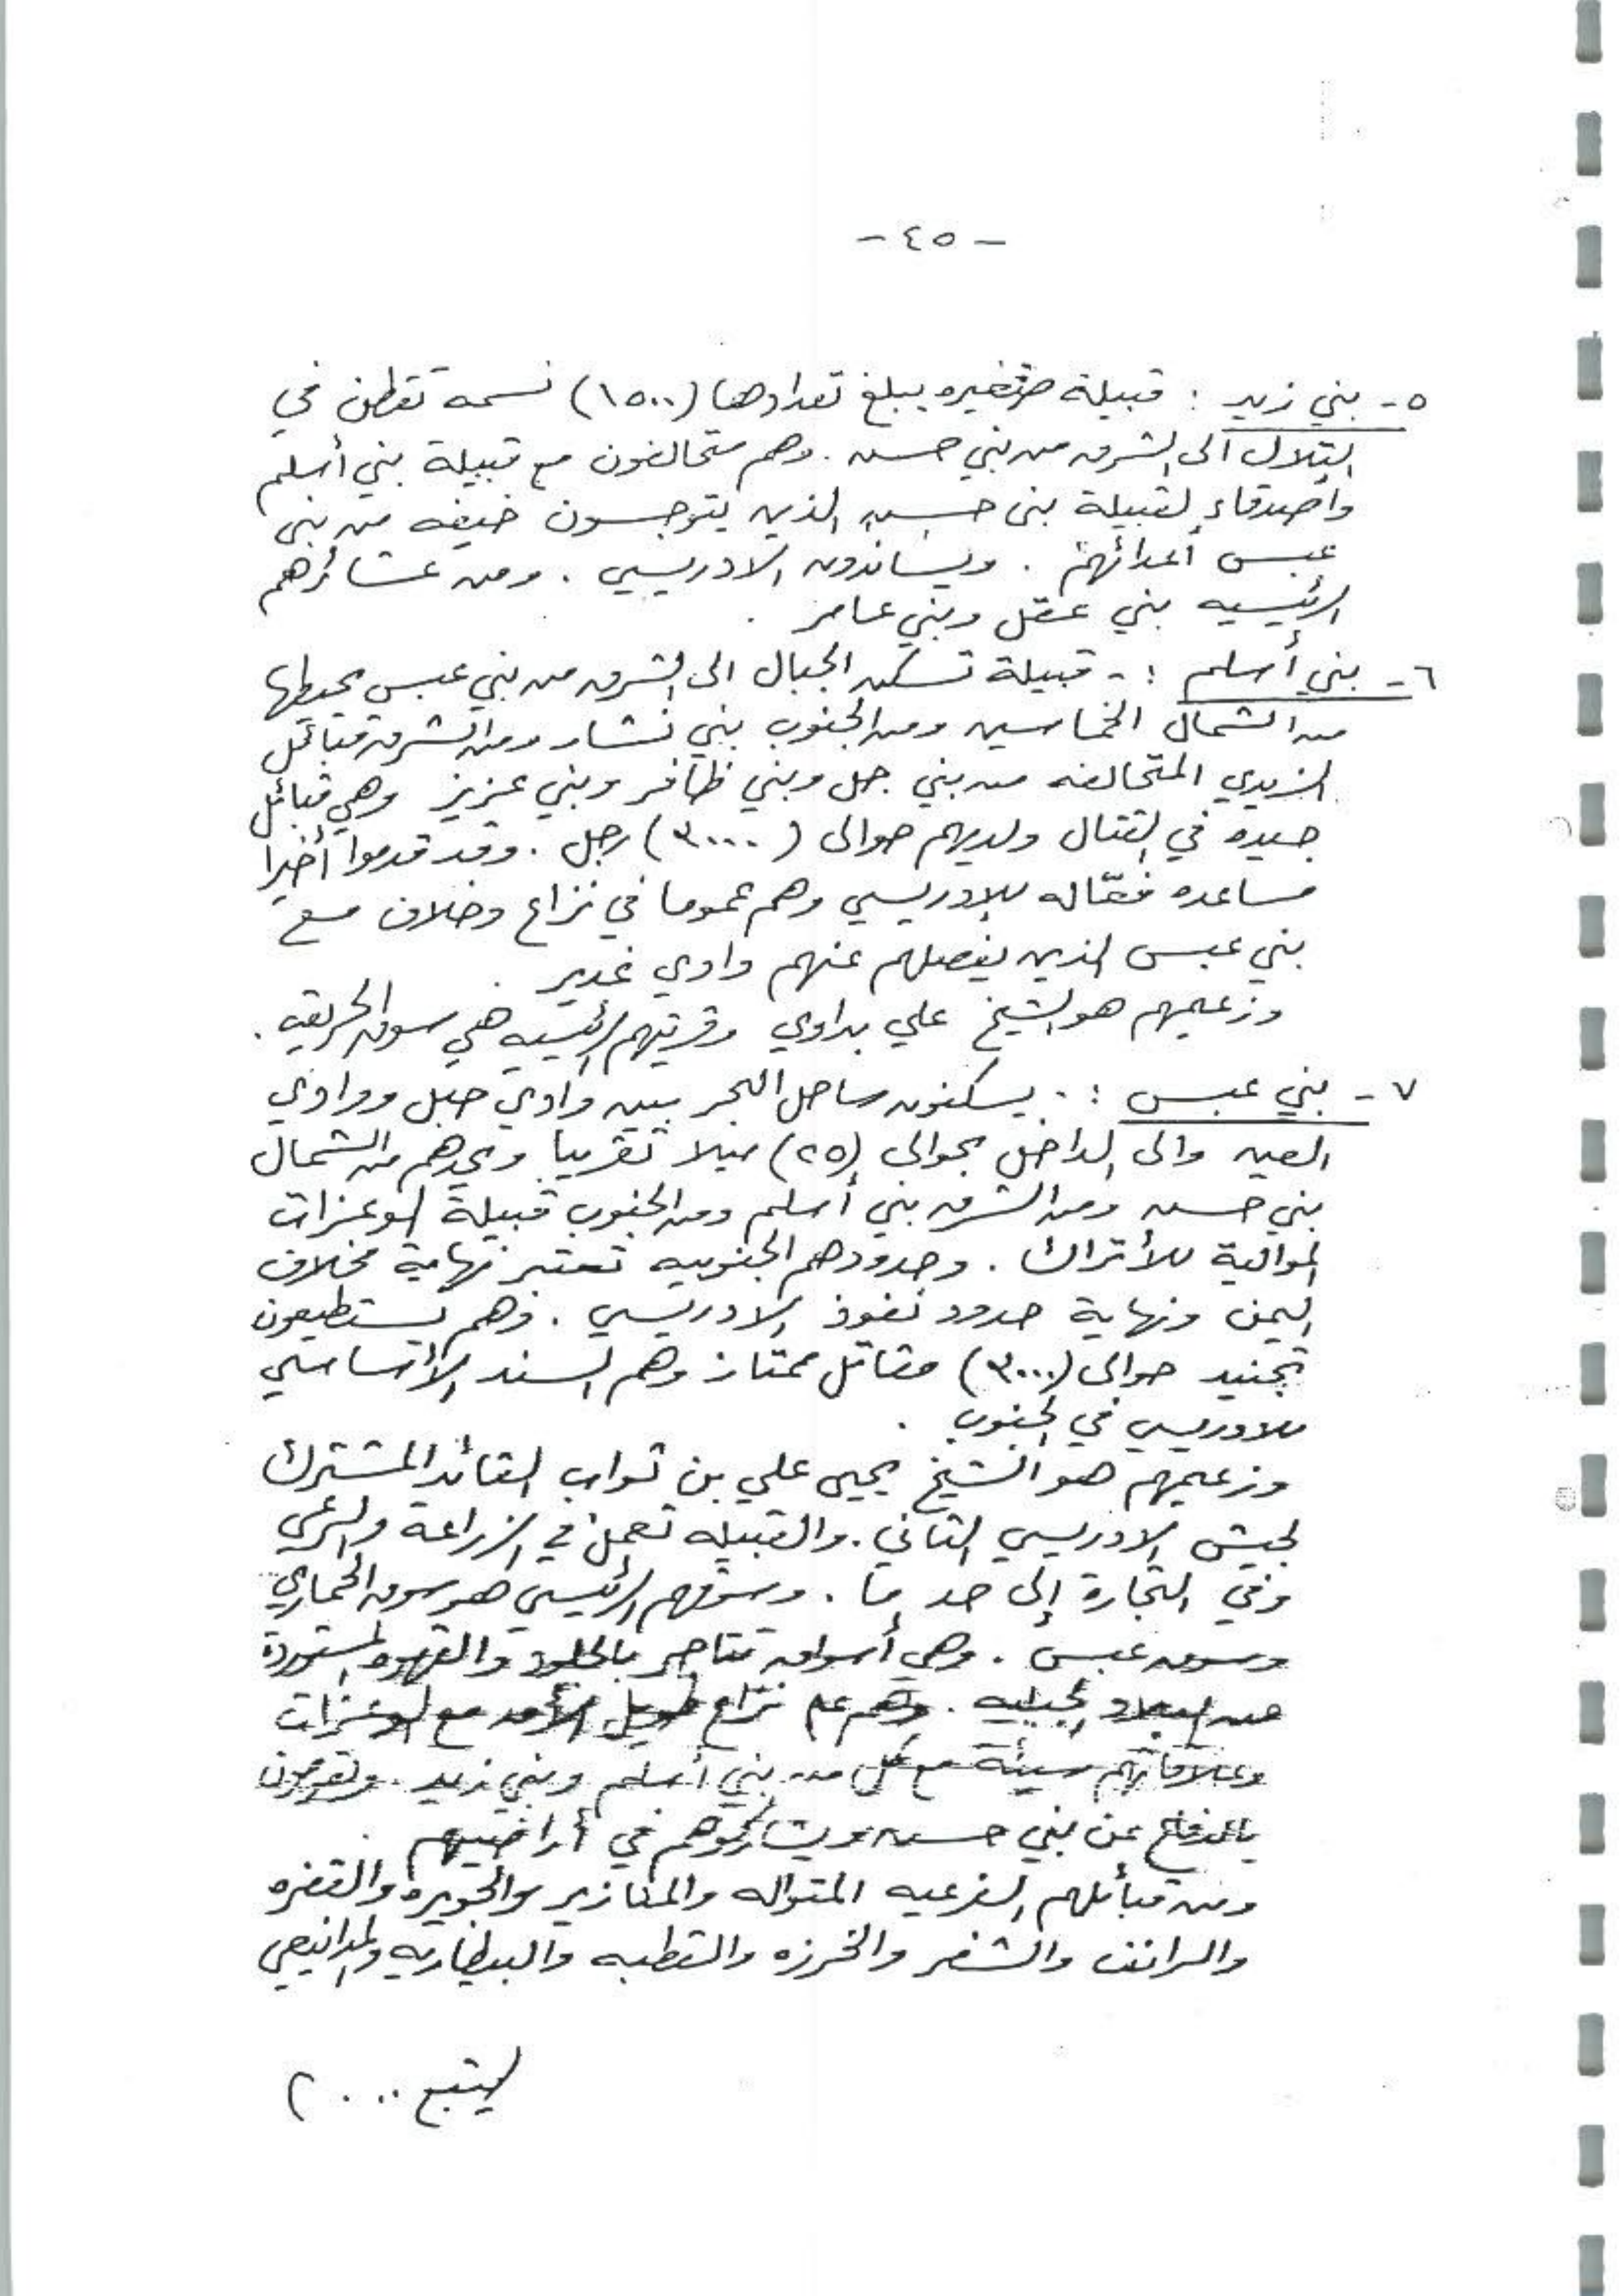 - ٤٥ -
٥- بني زيد : قبيلة صغيره يبلغ تعدادها (١٥٠٠) نسمه تقطن في
التلال الى الشرق من بني حسن . وهم متحالفون مع قبيلة بني أسلم
وأصدقاء لقبيلة بني حسن الذين يتوجسون خيفه من بني
عبس أعدائهم . ويساندون الادريسي . ومن عشائرهم
الرئيسيه بني عقل وبني عامر .
٦- بني أسلم :- قبيلة تسكن الجبال الى الشرق من بني عبس يحيطها
من الشمال الخماسين ومن الجنوب بني نشار ومن الشرق قبائل
الزيدي المتحالفه من بني جل وبني ظافر وبني عزيز وهي قبائل
جيده في القتال ولديهم حوالى (٣٠٠٠) رجل . وقد قدموا أخيرا
مساعده فعّاله للإدريسي وهم عموما في نزاع وخلاف مع
بني عبس الذين يفصلهم عنهم وادي غدير .
وزعيمهم هو الشيخ علي بداوي وقريتهم الرئيسيه هي سوق الحريقه .
٧- بني عبس :- يسكنون ساحل البحر بين وادي حبل ووادي
العين والى الداخل بحوالى (٢٥) ميلا تقريبا ويحدهم من الشمال
بني حسن ومن الشرق بني أسلم ومن الجنوب قبيلة الوعزات
الموالية للأتراك . وحدودهم الجنوبيه تعتبر نهاية مخلاف
اليمن ونهاية حدود نفوذ الادريسي . وهم يستطيعون
تجنيد حوالى (٣٠٠٠) مقاتل ممتاز وهم السند الأساسي
للادريسي في الجنوب .
وزعيمهم هو الشيخ يحيى علي بن ثواب القائد المشترك
لجيش الادريسي الثاني . والقبيله تعمل في الزراعة والرعي
وفي التجارة إلى حد ما . وسوقهم الرئيسي هو سوق الحماري
وسوق عبس . وهي أسواق تتاجر بالجلود والقهوه المستوردة
من البلاد الجبليه . وهم على نزاع طويل الأمد مع الوعزات
وعلاقاتهم سيئة مع كل من بني أسلم وبني زيد . ويقومون
بالدفاع عن بني حسن ويشاركوهم في أراضيهم .
ومن قبائلهم الفرعيه المتواله والمنازير والجويره والقفره
والراتف والشفر والخرزه والقطبه والبيطاريه والمدانيعي
يتبع ...